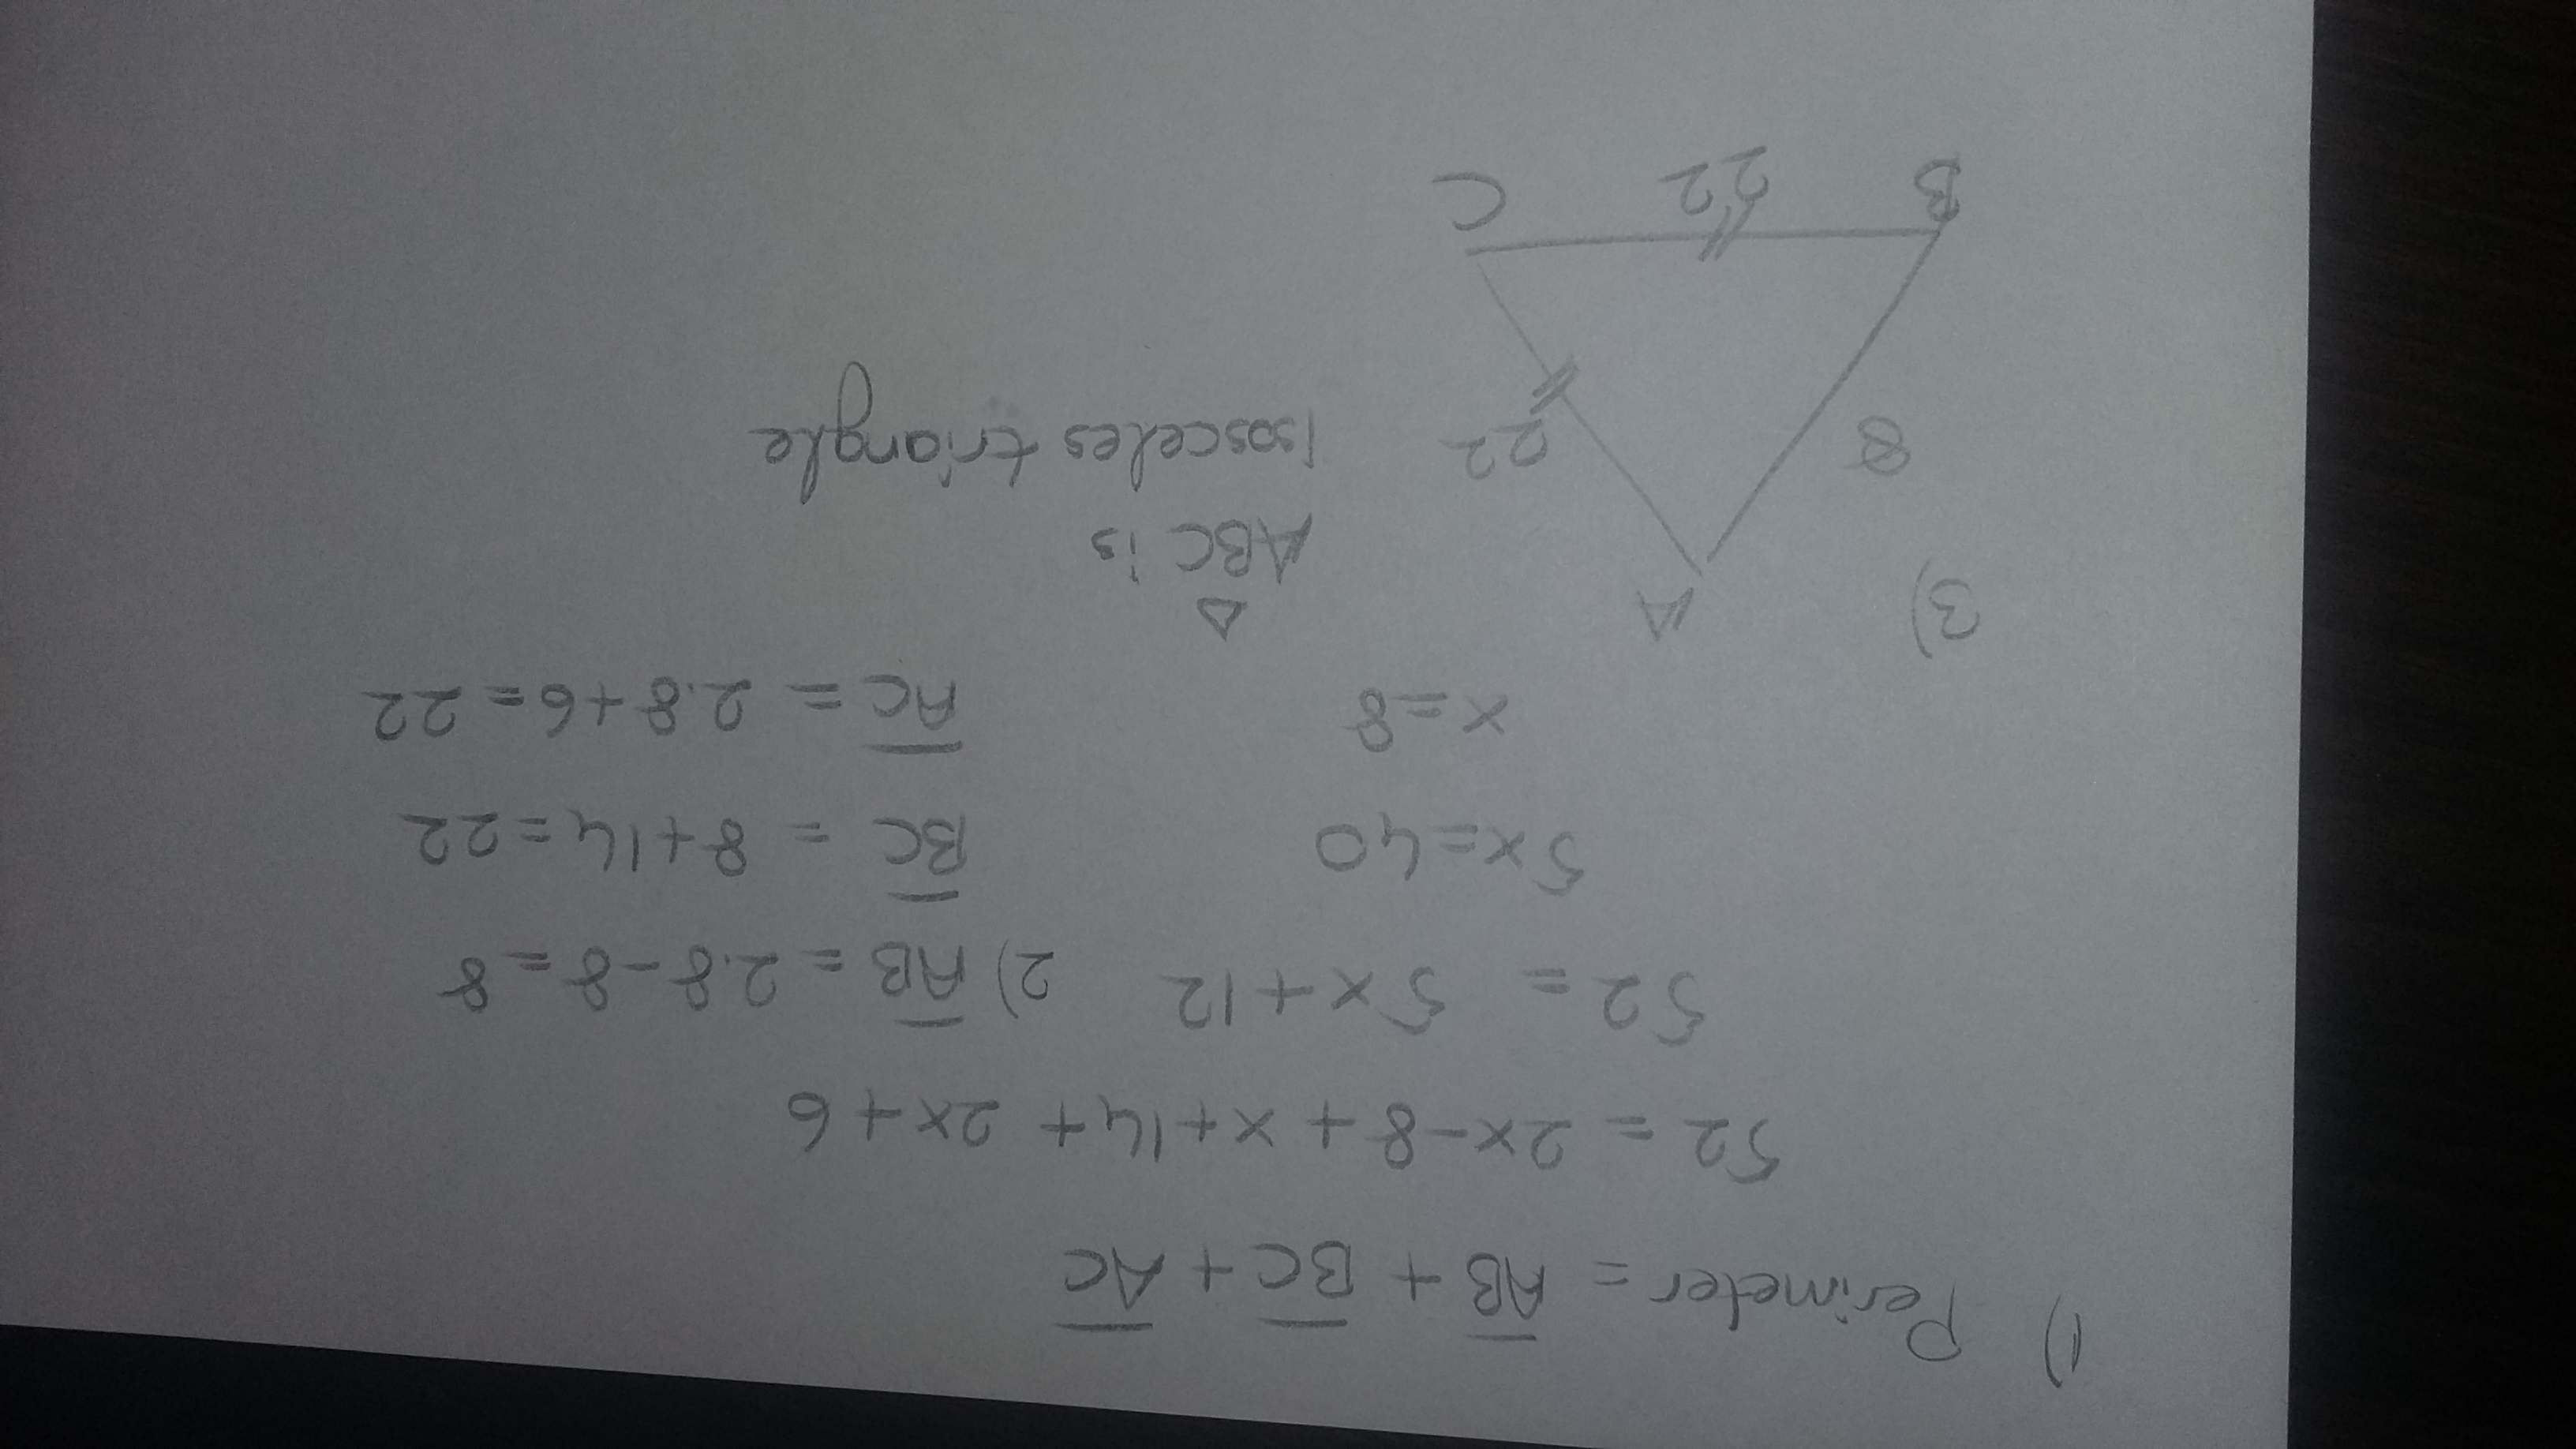 1) Perimeter = A̅B̅ + B̅C̅ + A̅C̅
52 = 2x-8 + x+14 + 2x+6
52 = 5x+12
5x=40
x=8
2) A̅B̅ = 2.8-8=8
B̅C̅ = 8+14=22
A̅C̅ = 2.8+6=22
3)
A
8
22
B
22
C
△
ABC is
isosceles triangle